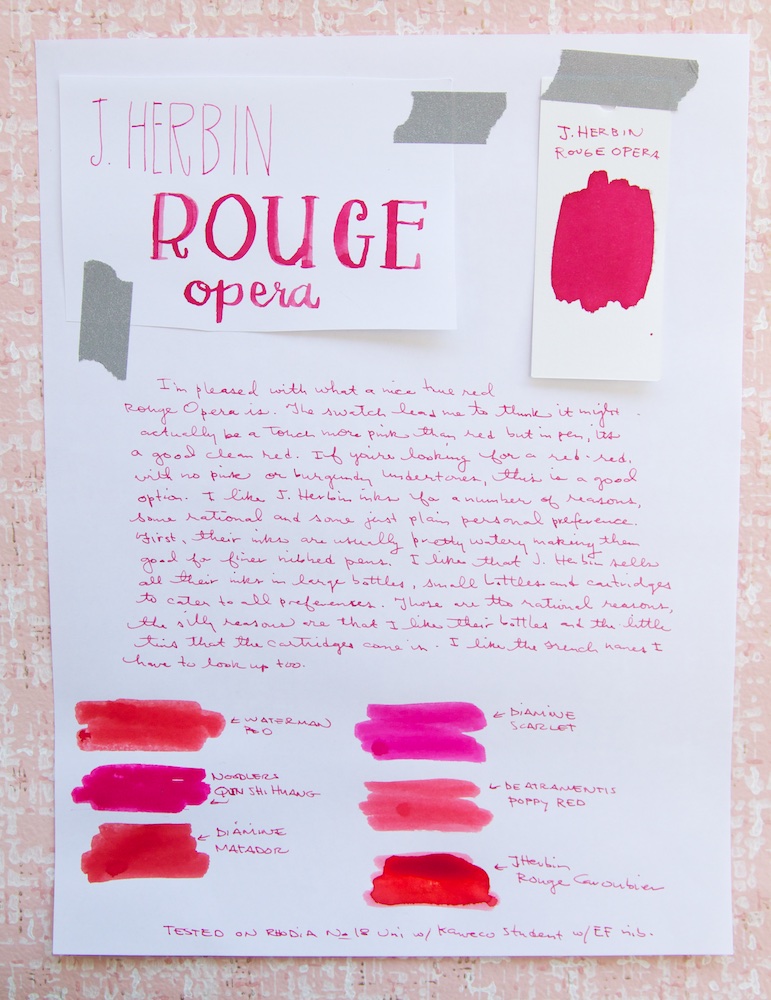 J. HERBIN
ROUGE
opera
J. HERBIN
ROUGE OPERA
I'm pleased with what a nice true red
Rouge Opera is. The swatch lead me to think it might
actually be a touch more pink than red but in pen, its
a good clean red. If you're looking for a red-red,
with no pink or burgundy undertones, this is a good
option. I like J. Herbin inks for a number of reasons,
some rational and some just plain personal preference.
First, their inks are usually pretty watery making them
good for finer nibbed pens. I like that J. Herbin sells
all their inks in large bottles, small bottles and cartridges
to cater to all preferences. Those are the rational reasons,
the silly reasons are that I like their bottles and the little
tins that the cartridges come in. I like the French names I
have to look up too.
← WATERMAN
RED
← DIAMINE
SCARLET
NOODLERS
QIN SHI HUANG
← DEATRAMENTIS
POPPY RED
← DIAMINE
MATADOR
← JHerbin
Rouge Caroubier
TESTED ON RHODIA No 18 Uni w/ Kaweco Student w/ EF nib.